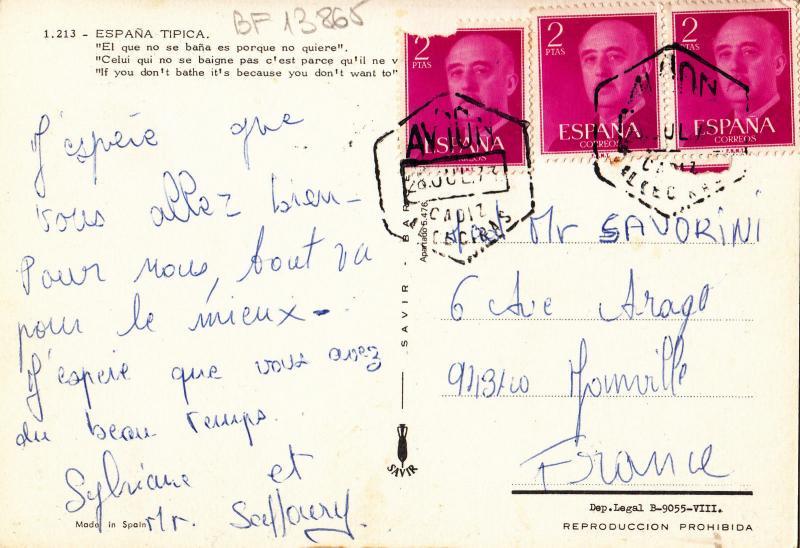 BF 13865
1.213 - ESPAÑA TIPICA.
"El que no se baña es porque no quiere".
"Celui qui no se baigne pas c'est parce qu'il ne v
"If you don't bathe it's because you don't want to"
J'espère que
vous allez bien -
Pour nous, tout va
pour le mieux -
J'espère que vous avez
du beau temps.
Sylviane et
Mr.
Made in Spain
SAVIR - BAR
Apartado 5.476
SAVIR
2
PTAS
ESPAÑA
CORREOS
2
PTAS
ESPAÑA
CORREOS
2
PTAS
ESPAÑA
CORREOS
AVION
28.JUL.73
CADIZ
ALGECIRAS
AVION
JUL
CADIZ
ALGECIRAS
Mr SAVORINI
6 Ave Arago
94340 Joinville
France
Dep. Legal B-9055-VIII.
REPRODUCCION PROHIBIDA